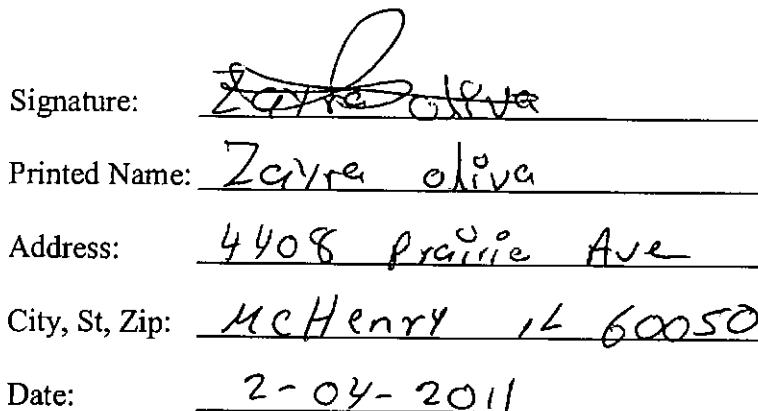 Signature: Zayra oliva
Printed Name: Zayra oliva
Address: 4408 Prairie Ave
City, St, Zip: McHenry IL 60050
Date: 2-04-2011